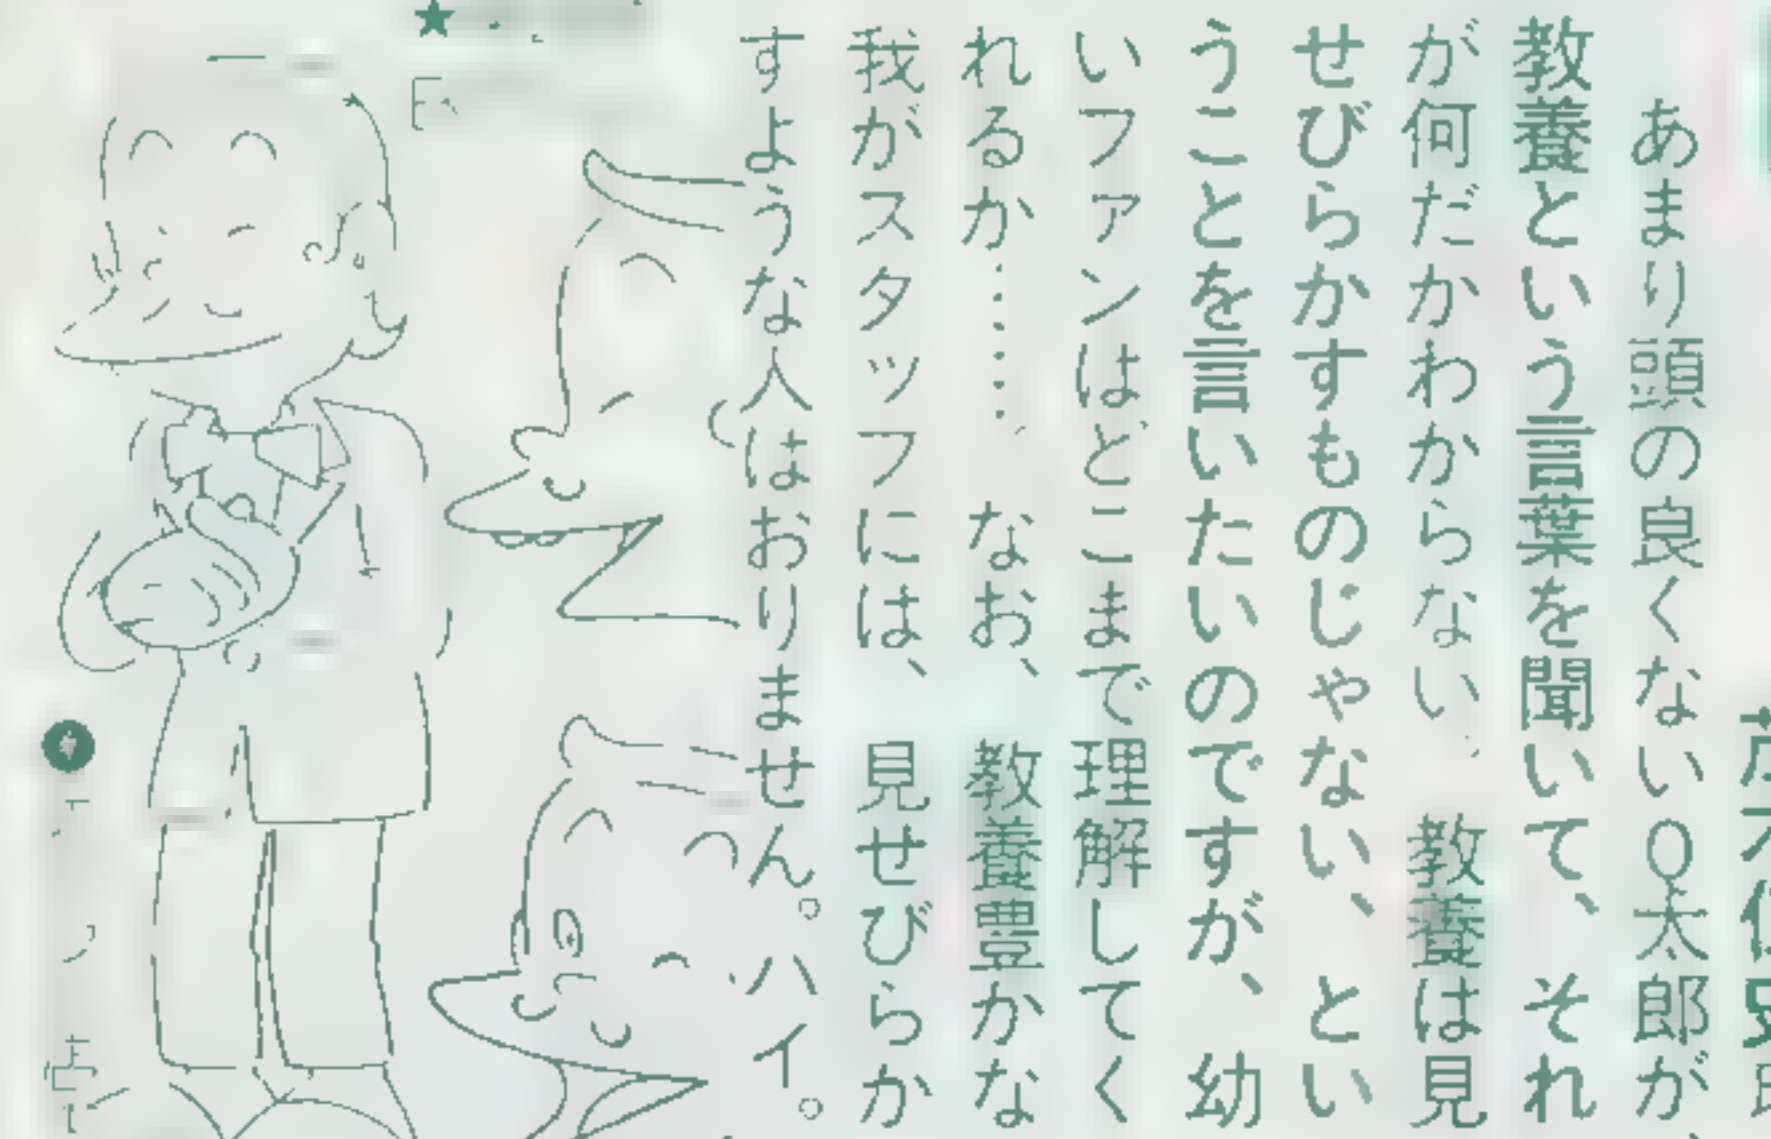 あまり頭の良くないO太郎が、
教養という言葉を聞いて、それ
が何だかわからない、教養は見
せびらかすものじゃない、とい
うことを言いたいのですが、幼
いファンはどこまで理解してく
れるか……なお、教養豊かな
我がスタッフには、見せびらか
すような人はおりません。ハイ。